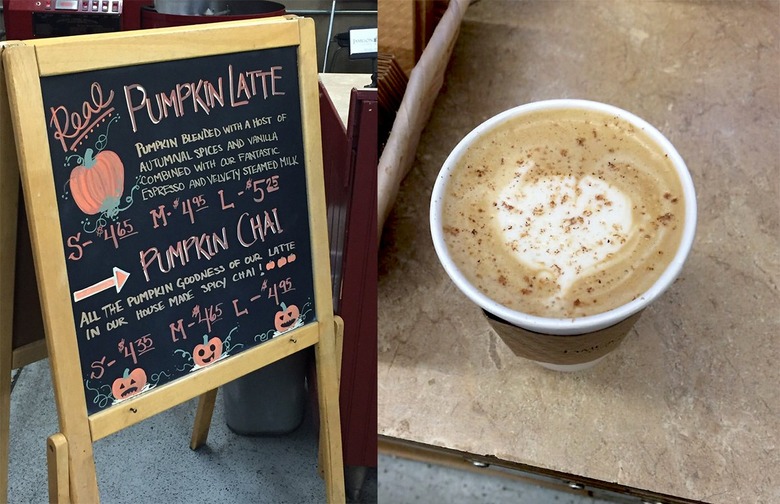 Real PUMPKIN LATTE
PUMPKIN BLENDED WITH A HOST OF
AUTUMNAL SPICES AND VANILLA
COMBINED WITH OUR FANTASTIC
ESPRESSO AND VELVETY STEAMED MILK
S-$4.65 M-$4.95 L-$5.25
PUMPKIN CHAI
ALL THE PUMPKIN GOODNESS OF OUR LATTE
IN OUR HOUSE MADE SPICY CHAI!
S-$4.35 M-$4.65 L-$4.95